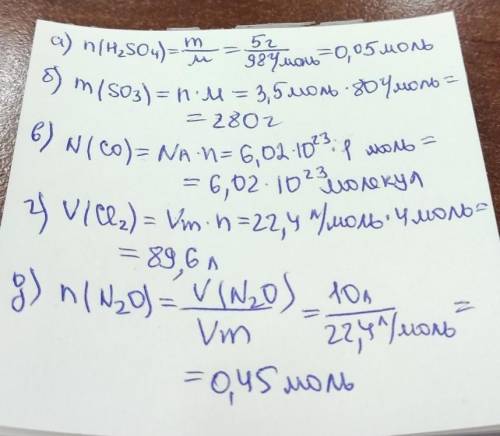 а) n(H₂SO₄)= m/м = 5г/98г/моль =0,05моль
б) m(SO₃)= n·м = 3,5моль·80г/моль=
= 280г
в) N(CO)= NA·n=6,02·10²³·1 моль=
= 6,02·10²³молекул
г) V(Cl₂)= Vm·n=22,4л/моль·4моль=
= 89,6л
д) n(N₂O)= V(N₂O)/Vm = 10л/22,4л/моль =
= 0,45моль